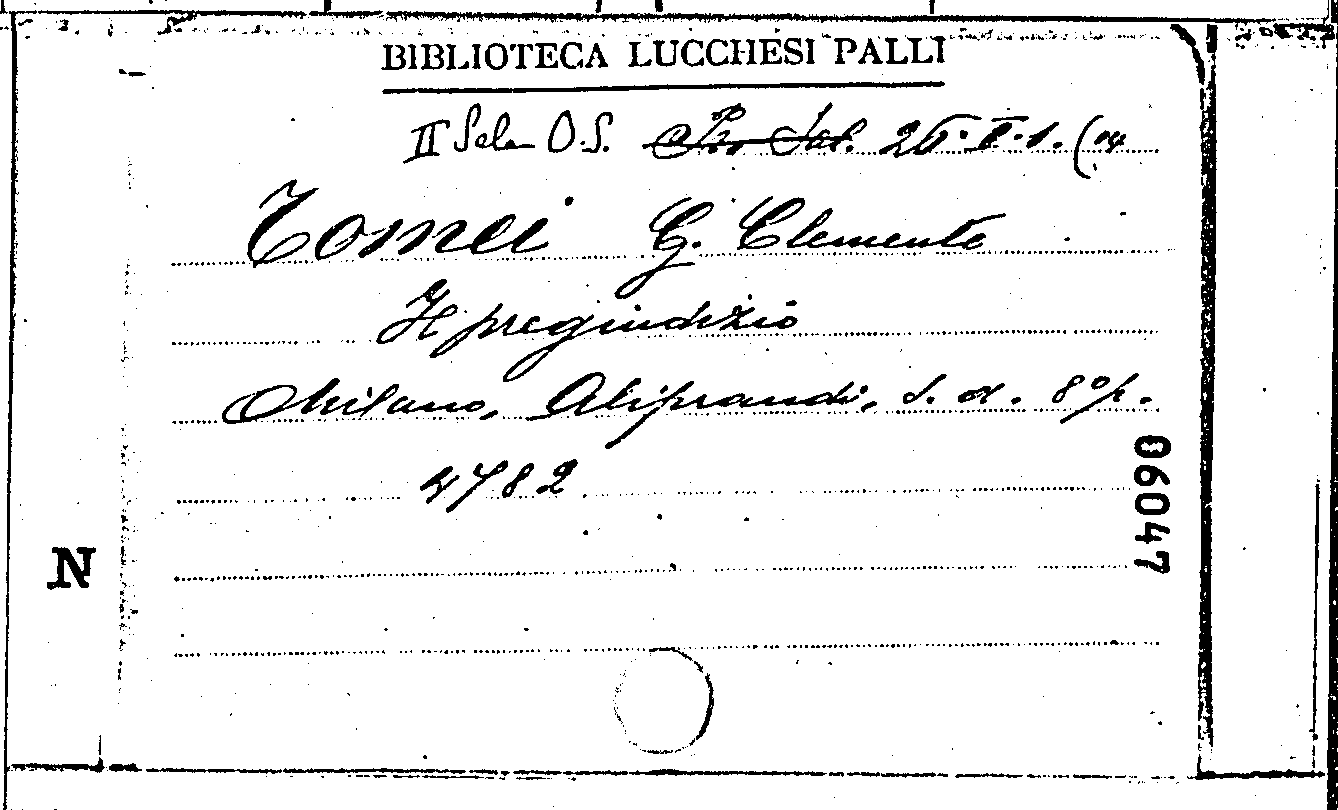 BIBLIOTECA LUCCHESI PALLI
II Sala O.S. Pro Sal. 26. I. 1. (14
Tomei G. Clemente
Il pregiudizio
Milano, Aliprandi, s. d. 8° p.
4782
06047
N